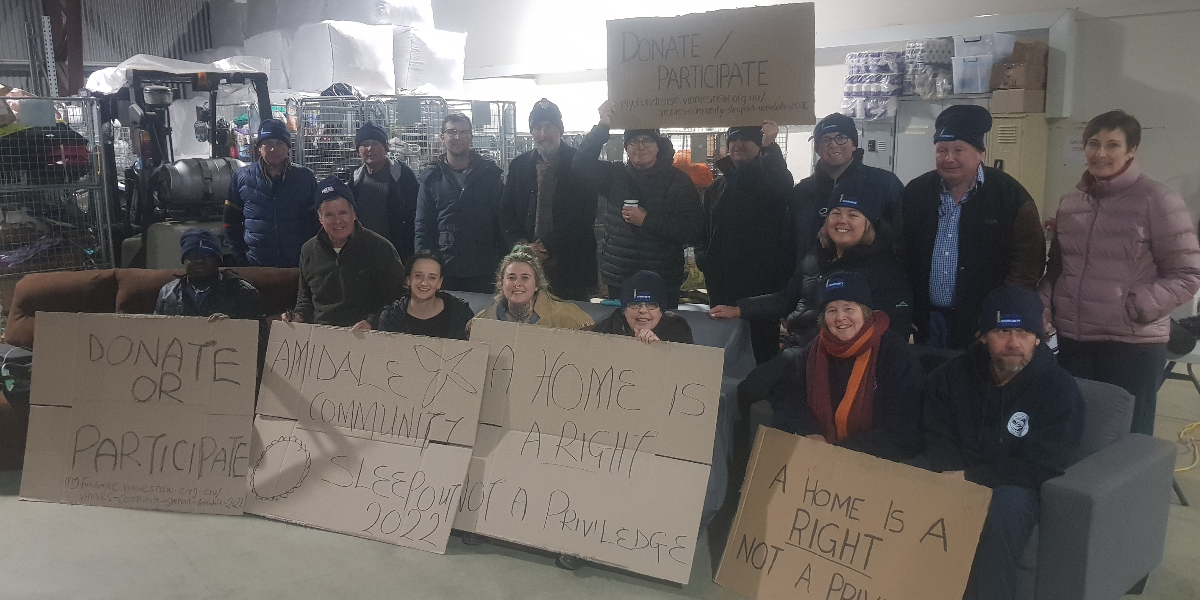 DONATE /
PARTICIPATE
DONATE
OR
PARTICIPATE
AMIDALE
COMMUNITY
SLEEPOUT
2022
A HOME IS
A RIGHT
NOT A PRIVILEDGE
A HOME IS A
RIGHT
NOT A PRIV